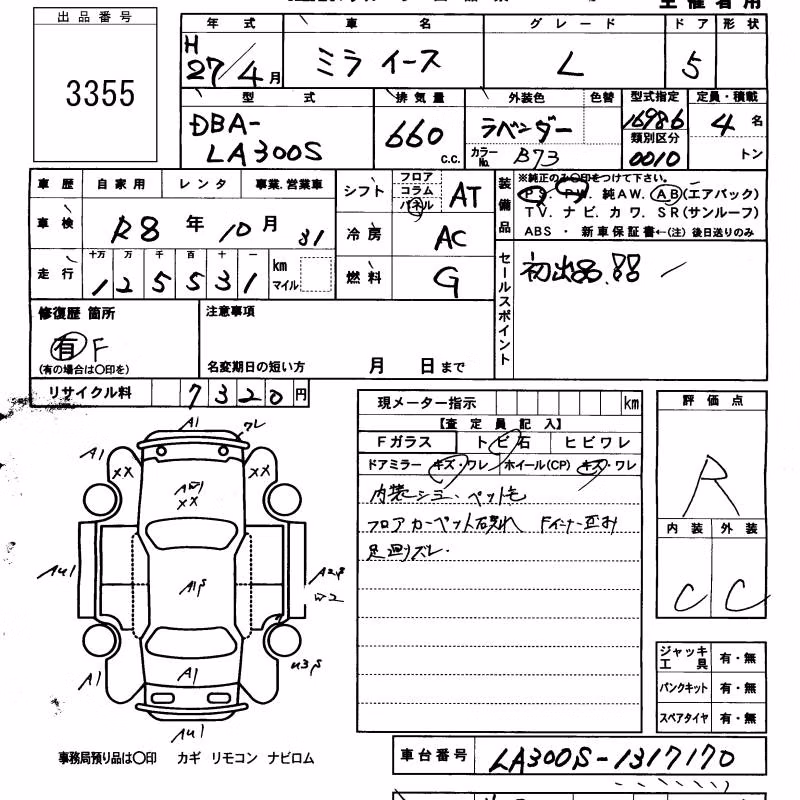 出品番号
3355
年 式
H
27/4月
車 名
ミラ イース
グレード
L
ドア
5
形状
型 式
DBA-
LA300S
排気量
660
C.C.
外装色
ラベンダー
色替
カラーNo.
B73
型式指定
16986
類別区分
0010
定員・積載
4 名
トン
車歴
自家用
レンタ
事業.営業車
車検
R8 年 10月 31
走行
十万 万 千 百 十 一
1 2 5 5 3 1
km
マイル
シフト
フロア
コラム
パネル
AT
冷房
AC
燃料
G
装備品
※純正のみ〇印をつけて下さい。
PS. PW. 純AW. AB(エアバック)
TV. ナビ. カワ. SR(サンルーフ)
ABS ・ 新車保証書←(注) 後日送りのみ
セールスポイント
初出品.
修復歴 箇所
有 F
(有の場合は〇印を)
注意事項
名変期日の短い方 月 日まで
リサイクル料
7 3 2 0 円
現メーター指示
km
【査定員記入】
Fガラス
トビ石
ヒビワレ
ドアミラー
キズ・ワレ
ホイール(CP)
キズ・ワレ
内装シミ、ペット毛
フロアカーペット破れ Fインナー歪み
足廻りズレ.
評価点
R
内装
外装
C
C
ジャッキ工具
有・無
パンクキット
有・無
スペアタイヤ
有・無
A1
ワレ
A1
XX
XX
XX
AU1
A1
A1
A1
AU1
U3
事務局預り品は〇印 カギ リモコン ナビロム
車台番号
LA300S-1317170